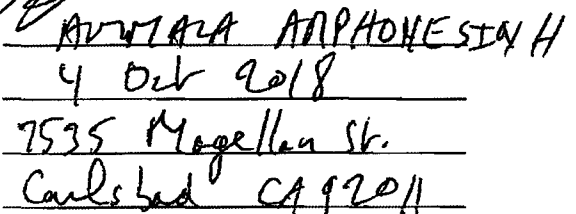 AMPHONESINH
4 Oct 2018
7535 Magellan St.
Carlsbad CA 92011